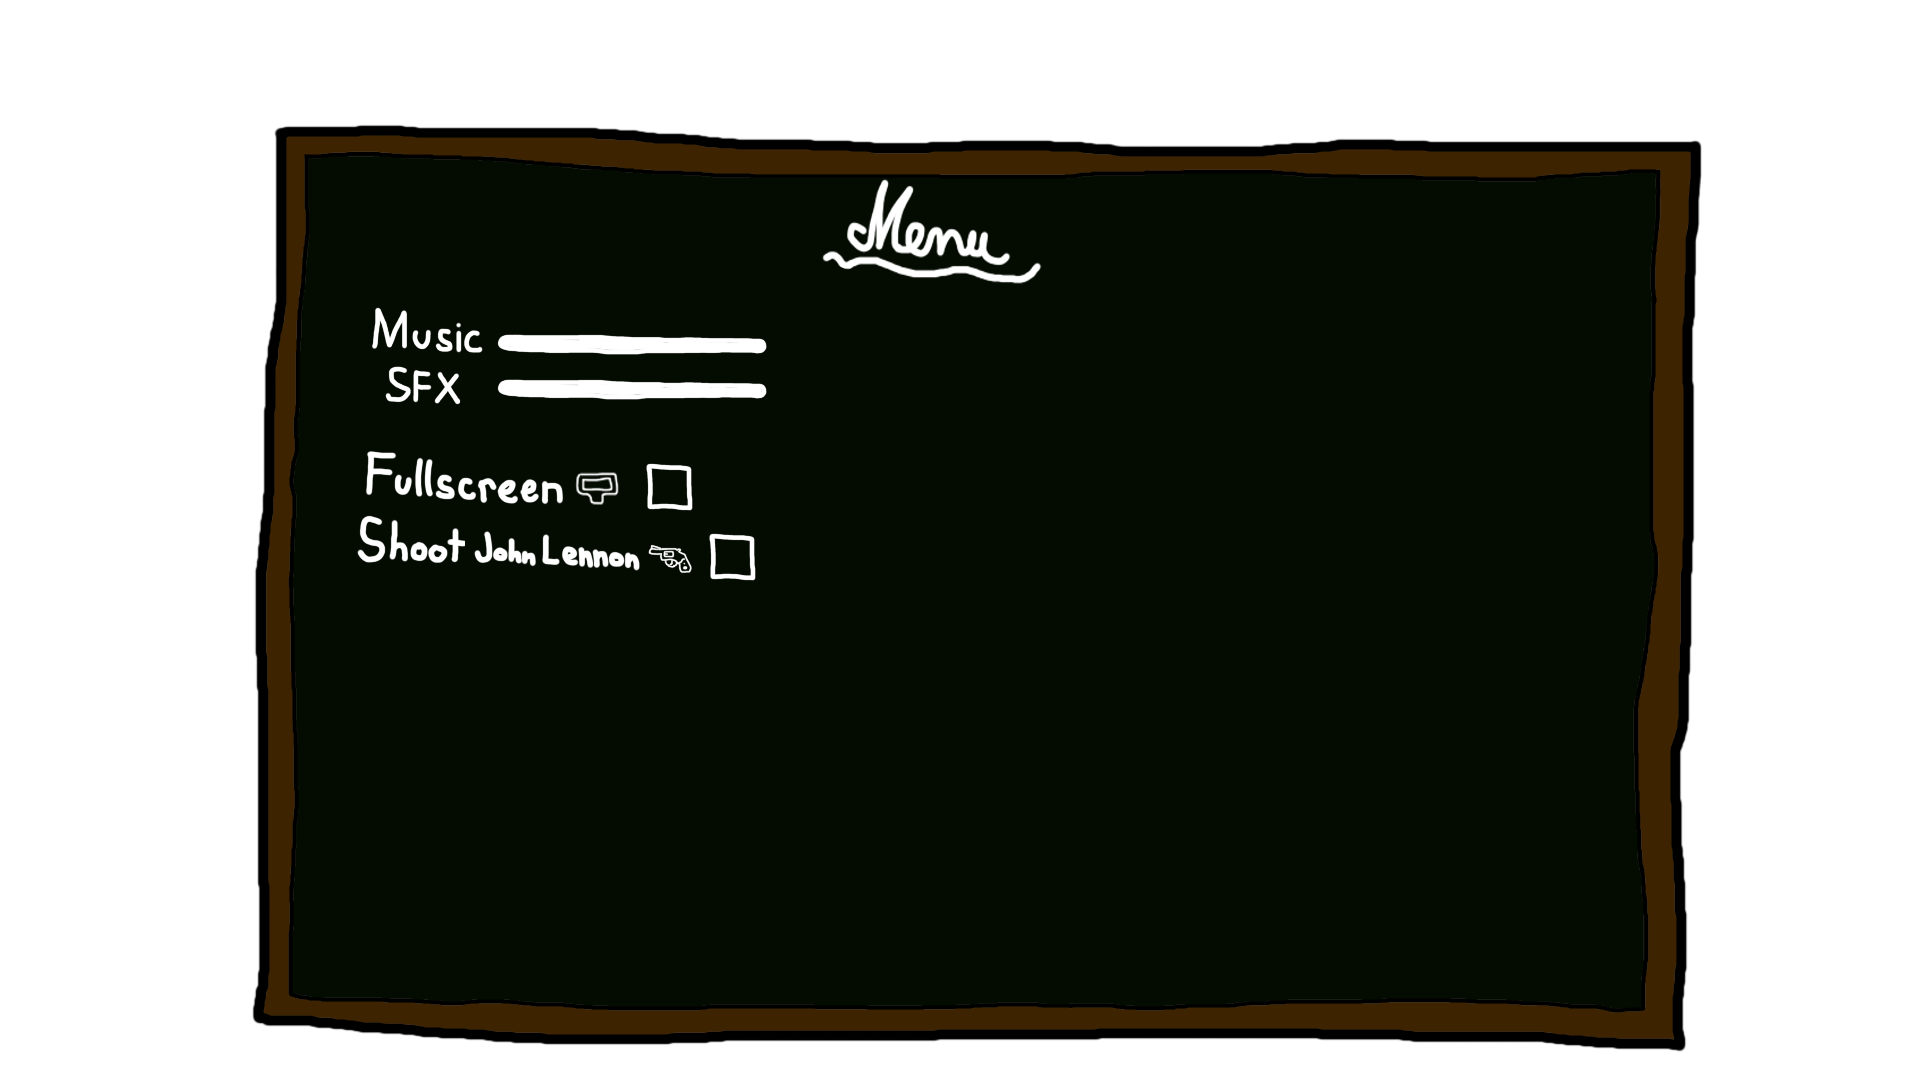 Menu
Music
SFX
Fullscreen
Shoot John Lennon